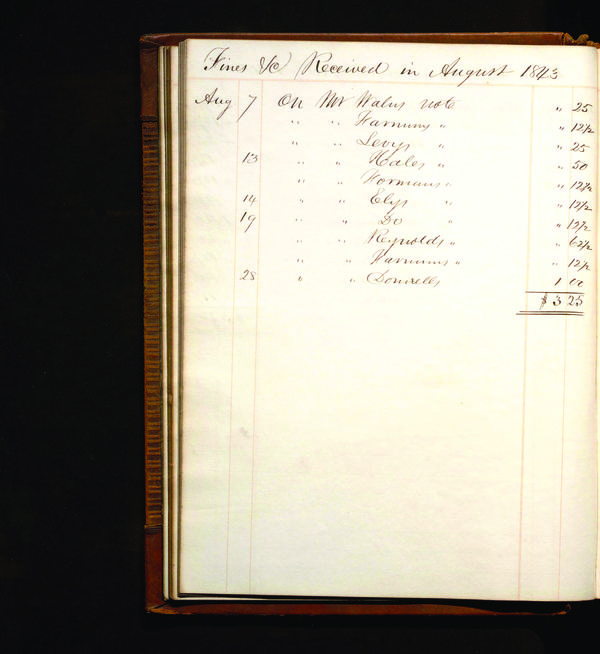 Fines &c Received in August 1843
Aug 7 On Mr Walns note " 25
" " Hamums " " 12½
" " Levys " " 25
13 " " Hales " " 50
" " Hormans " " 12½
14 " " Elys " " 12½
19 " " Do " " 12½
" " Reynolds " " 62½
" " Hamums " " 12½
28 " " Donnells 1 00
$ 3 25